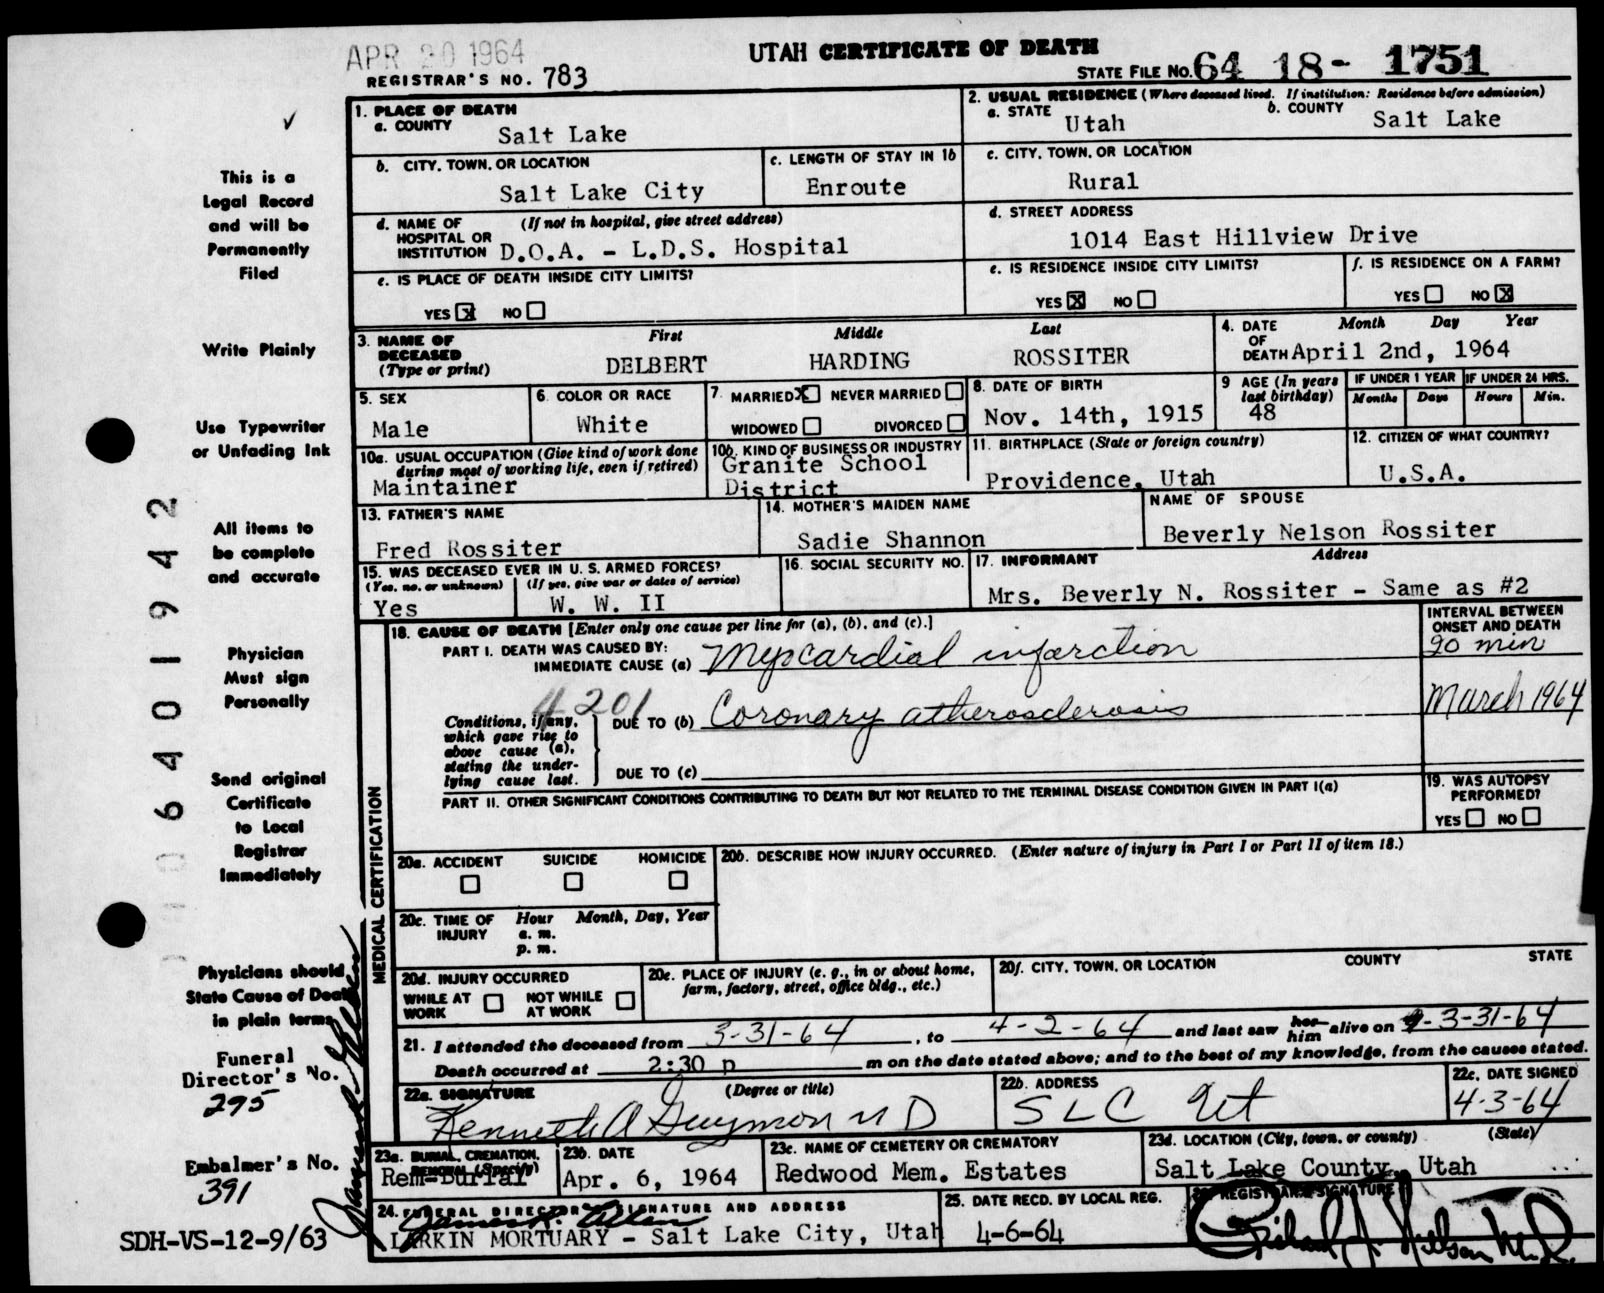 APR 20 1964
UTAH CERTIFICATE OF DEATH
REGISTRAR'S NO. 783
STATE FILE NO. 64 18- 1751
1. PLACE OF DEATH
a. COUNTY
Salt Lake
2. USUAL RESIDENCE (Where deceased lived. If institution: Residence before admission)
a. STATE Utah b. COUNTY Salt Lake
b. CITY, TOWN, OR LOCATION
Salt Lake City
c. LENGTH OF STAY IN 1b
Enroute
c. CITY, TOWN, OR LOCATION
Rural
d. NAME OF HOSPITAL OR INSTITUTION (If not in hospital, give street address)
D.O.A. - L.D.S. Hospital
d. STREET ADDRESS
1014 East Hillview Drive
e. IS PLACE OF DEATH INSIDE CITY LIMITS?
YES X NO
e. IS RESIDENCE INSIDE CITY LIMITS?
YES X NO
f. IS RESIDENCE ON A FARM?
YES NO X
3. NAME OF DECEASED (Type or print)
First Middle Last
DELBERT HARDING ROSSITER
4. DATE OF DEATH Month Day Year
April 2nd, 1964
5. SEX
Male
6. COLOR OR RACE
White
7. MARRIED X NEVER MARRIED
WIDOWED DIVORCED
8. DATE OF BIRTH
Nov. 14th, 1915
9 AGE (In years last birthday)
48
IF UNDER 1 YEAR
Months Days
IF UNDER 24 HRS.
Hours Min.
10a. USUAL OCCUPATION (Give kind of work done during most of working life, even if retired)
Maintainer
10b. KIND OF BUSINESS OR INDUSTRY
Granite School
District
11. BIRTHPLACE (State or foreign country)
Providence, Utah
12. CITIZEN OF WHAT COUNTRY?
U.S.A.
13. FATHER'S NAME
Fred Rossiter
14. MOTHER'S MAIDEN NAME
Sadie Shannon
NAME OF SPOUSE
Beverly Nelson Rossiter
15. WAS DECEASED EVER IN U. S. ARMED FORCES?
(Yes, no, or unknown) (If yes, give war or dates of service)
Yes W. W. II
16. SOCIAL SECURITY NO.
17. INFORMANT Address
Mrs. Beverly N. Rossiter - Same as #2
MEDICAL CERTIFICATION
18. CAUSE OF DEATH [Enter only one cause per line for (a), (b), and (c).]
INTERVAL BETWEEN ONSET AND DEATH
PART I. DEATH WAS CAUSED BY:
IMMEDIATE CAUSE (a) Myocardial infarction
90 min
4201
Conditions, if any, which gave rise to above cause (a), stating the underlying cause last.
DUE TO (b) Coronary atherosclerosis
March 1964
DUE TO (c)
PART II. OTHER SIGNIFICANT CONDITIONS CONTRIBUTING TO DEATH BUT NOT RELATED TO THE TERMINAL DISEASE CONDITION GIVEN IN PART I(a)
19. WAS AUTOPSY PERFORMED?
YES NO
20a. ACCIDENT SUICIDE HOMICIDE
20b. DESCRIBE HOW INJURY OCCURRED. (Enter nature of injury in Part I or Part II of item 18.)
20c. TIME OF INJURY Hour Month, Day, Year
a. m.
p. m.
20d. INJURY OCCURRED
WHILE AT WORK NOT WHILE AT WORK
20e. PLACE OF INJURY (e. g., in or about home, farm, factory, street, office bldg., etc.)
20f. CITY, TOWN, OR LOCATION COUNTY STATE
21. I attended the deceased from 3-31-64, to 4-2-64 and last saw her him alive on 3-31-64
Death occurred at 2:30 p m on the date stated above; and to the best of my knowledge, from the causes stated.
22a. SIGNATURE (Degree or title)
Kenneth A Guymon MD
22b. ADDRESS
SLC Ut
22c. DATE SIGNED
4-3-64
23a. BURIAL, CREMATION, REMOVAL (Specify)
Rem-Burial
23b. DATE
Apr. 6, 1964
23c. NAME OF CEMETERY OR CREMATORY
Redwood Mem. Estates
23d. LOCATION (City, town, or county) (State)
Salt Lake County, Utah
24. FUNERAL DIRECTOR'S SIGNATURE AND ADDRESS
James R. Allen
LARKIN MORTUARY - Salt Lake City, Utah
25. DATE RECD. BY LOCAL REG.
4-6-64
26. REGISTRAR'S SIGNATURE
This is a
Legal Record
and will be
Permanently
Filed
Write Plainly
Use Typewriter
or Unfading Ink
All items to
be complete
and accurate
Physician
Must sign
Personally
Send original
Certificate
to Local
Registrar
Immediately
Physicians should
State Cause of Death
in plain terms
Funeral
Director's No.
295
Embalmer's No.
391
SDH-VS-12-9/63